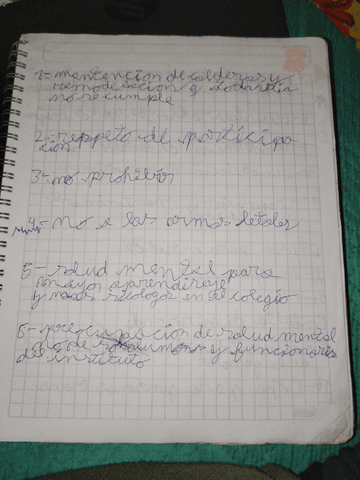 1- mantencion de calderas y
remodelacion q todavia
no se cumple
2- respeto de participa
cion
3- no prohibir
4- no a las armas letales
5- salud mental para
mayor aprendizaje
y mas sicologos en el colegio
6- preocupacion de salud mental
de alumnos y funcionarios
del instituto